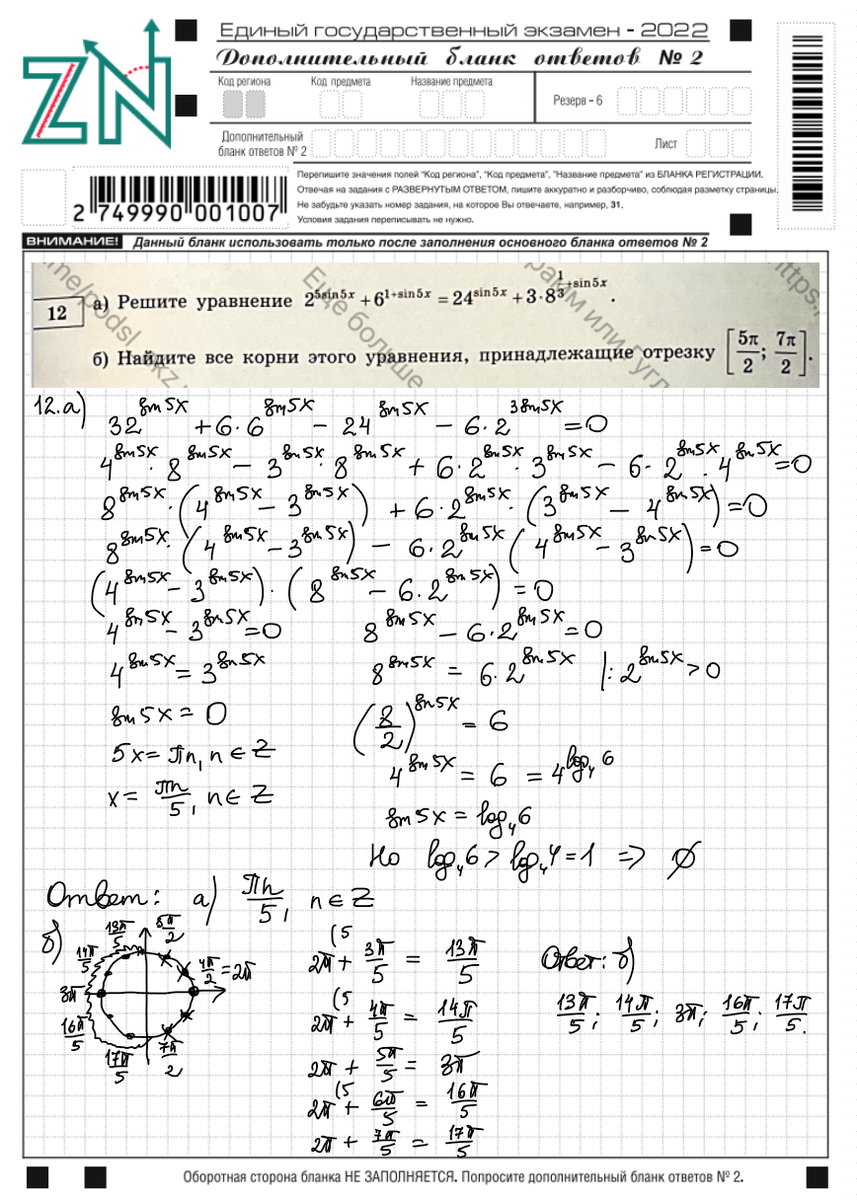 ZN
Единый государственный экзамен - 2022
Дополнительный бланк ответов № 2
Код региона Код предмета Название предмета
Резерв - 6
Дополнительный бланк ответов № 2
Лист
Перепишите значения полей "Код региона", "Код предмета", "Название предмета" из БЛАНКА РЕГИСТРАЦИИ.
Отвечая на задания с РАЗВЕРНУТЫМ ОТВЕТОМ, пишите аккуратно и разборчиво, соблюдая разметку страницы.
Не забудьте указать номер задания, на которое Вы отвечаете, например, 31.
Условия задания переписывать не нужно.
2 749990 001007
ВНИМАНИЕ! Данный бланк использовать только после заполнения основного бланка ответов № 2
12 а) Решите уравнение 2^{5sin5x} + 6^{1+sin5x} = 24^{sin5x} + 3·8^{1/3+sin5x}.
б) Найдите все корни этого уравнения, принадлежащие отрезку [5π/2; 7π/2].
Еще больше
https:
12.а) 32^{sin5x} + 6·6^{sin5x} − 24^{sin5x} − 6·2^{3sin5x} = 0
4^{sin5x}·8^{sin5x} − 3^{sin5x}·8^{sin5x} + 6·2^{sin5x}·3^{sin5x} − 6·2^{sin5x}·4^{sin5x} = 0
8^{sin5x}·(4^{sin5x} − 3^{sin5x}) + 6·2^{sin5x}·(3^{sin5x} − 4^{sin5x}) = 0
8^{sin5x}·(4^{sin5x} − 3^{sin5x}) − 6·2^{sin5x}(4^{sin5x} − 3^{sin5x}) = 0
(4^{sin5x} − 3^{sin5x})·(8^{sin5x} − 6·2^{sin5x}) = 0
4^{sin5x} − 3^{sin5x} = 0 8^{sin5x} − 6·2^{sin5x} = 0
4^{sin5x} = 3^{sin5x} 8^{sin5x} = 6·2^{sin5x} |: 2^{sin5x} > 0
sin5x = 0 (8/2)^{sin5x} = 6
5x = πn, n ∈ Z 4^{sin5x} = 6 = 4^{log₄6}
x = πn/5, n ∈ Z sin5x = log₄6
Но log₄6 > log₄4 = 1 => ∅
Ответ: а) πn/5, n ∈ Z
б)
13π/5 5π/2
14π/5 4π/2 = 2π
3π
16π/5
17π/5 7π/2
2π + 3π/5 = 13π/5
2π + 4π/5 = 14π/5
2π + 5π/5 = 3π
2π + 6π/5 = 16π/5
2π + 7π/5 = 17π/5
Ответ: б)
13π/5; 14π/5; 3π; 16π/5; 17π/5.
Оборотная сторона бланка НЕ ЗАПОЛНЯЕТСЯ. Попросите дополнительный бланк ответов № 2.